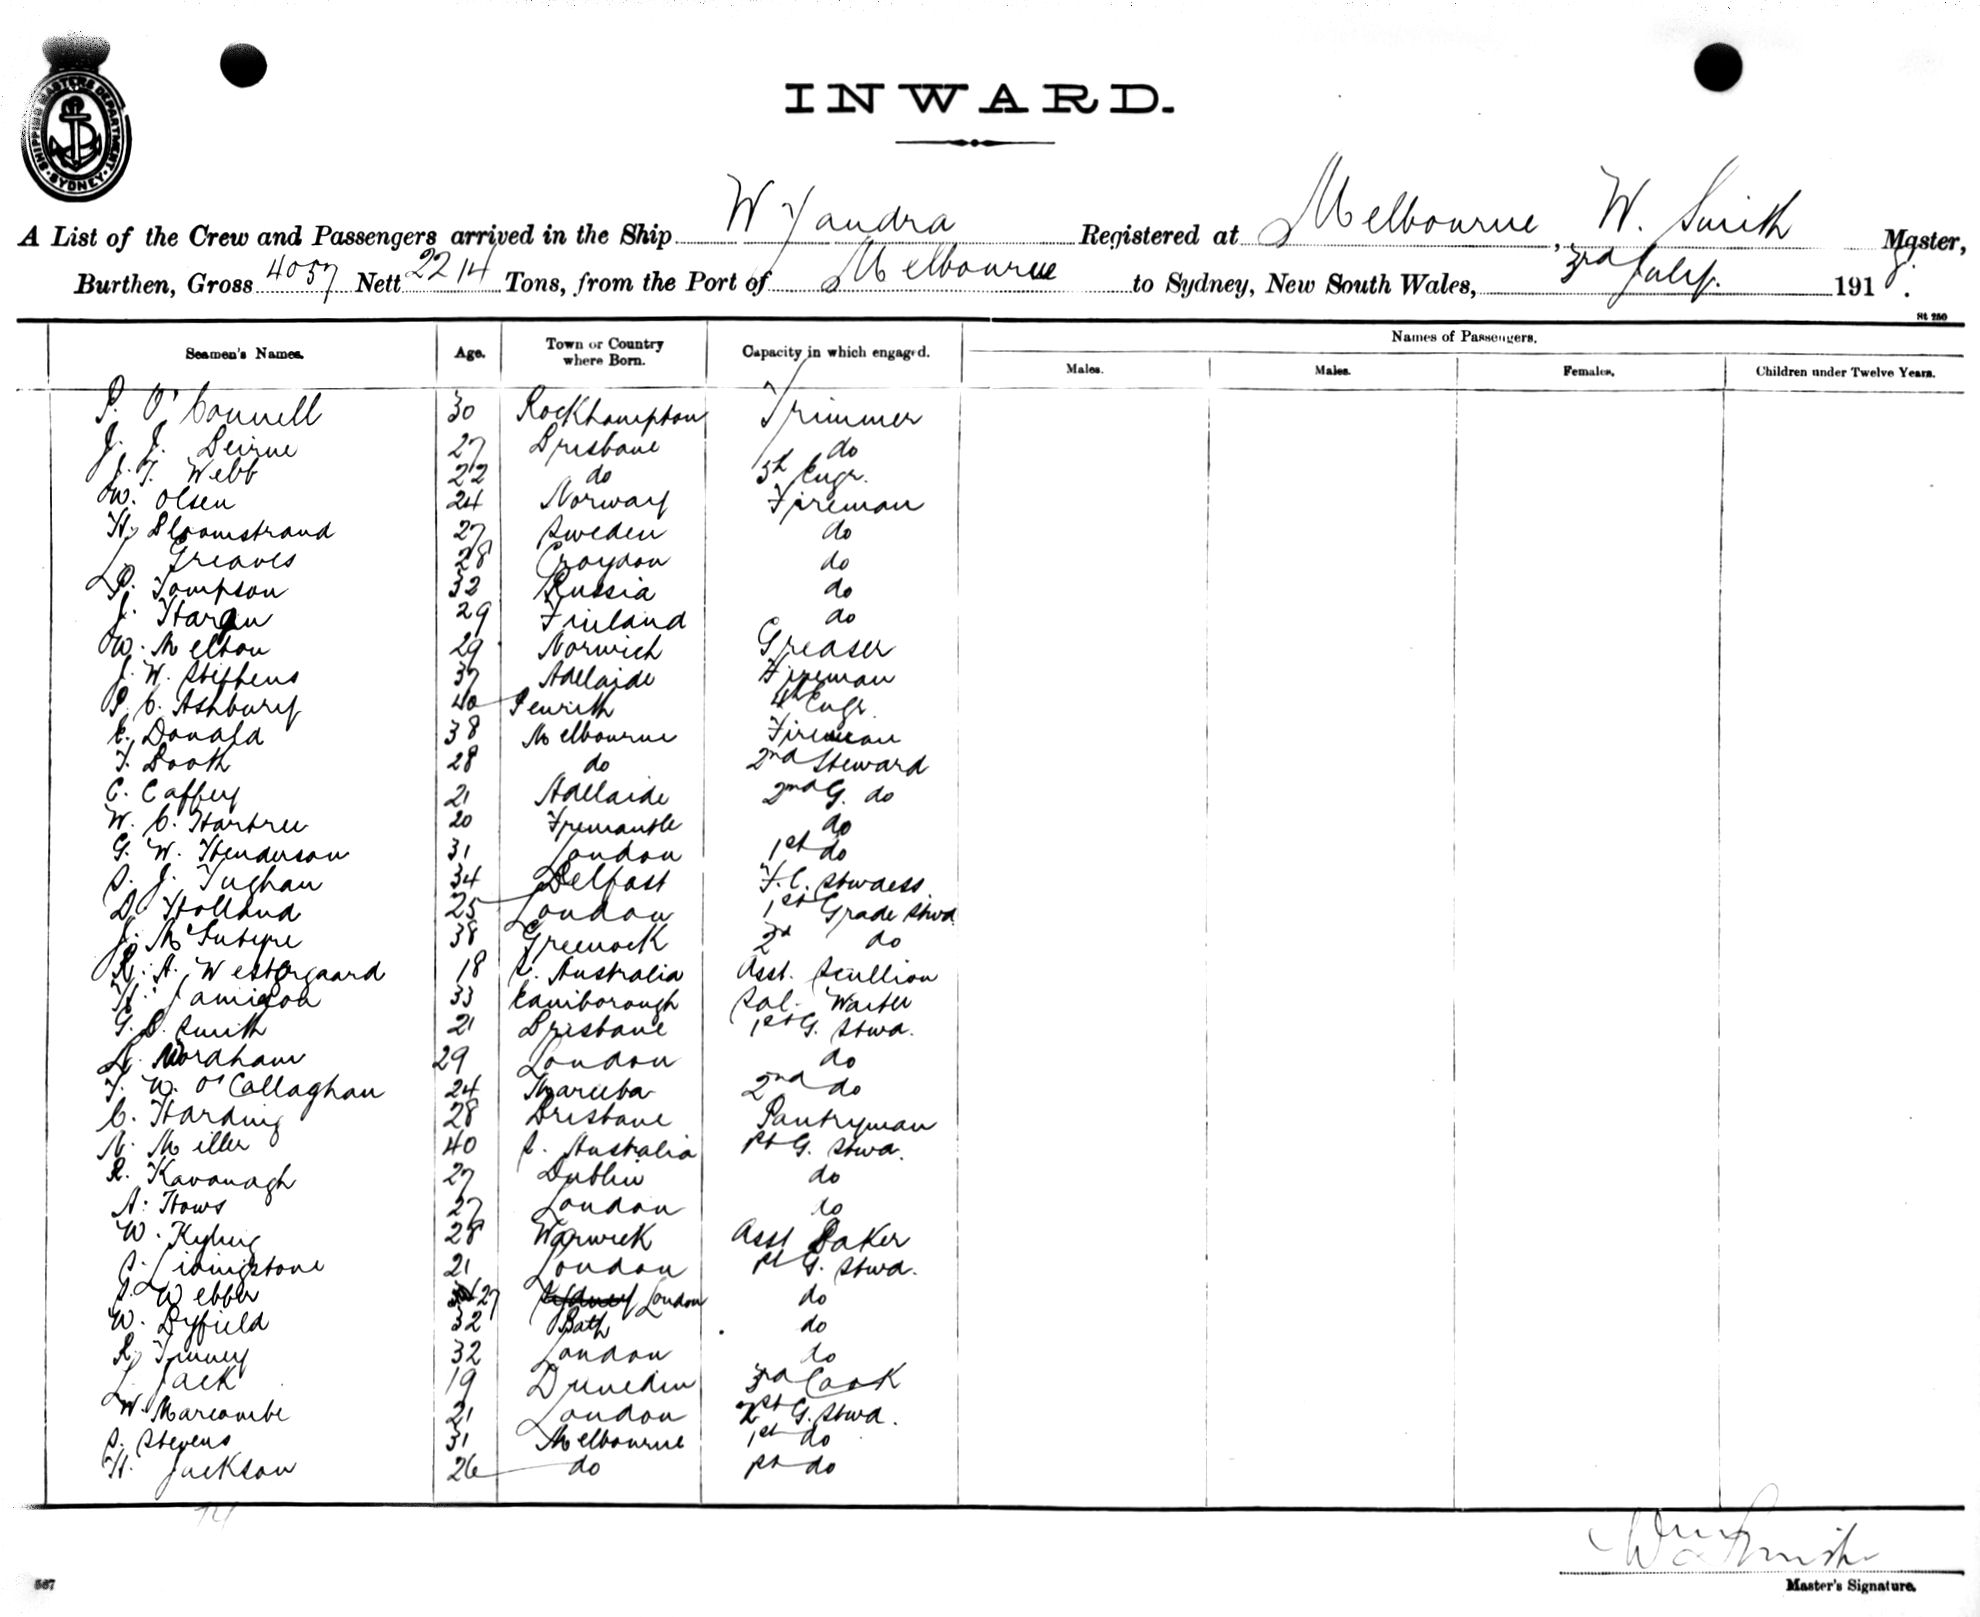 SHIPPING MASTERS DEPARTMENT. SYDNEY.
INWARD.
A List of the Crew and Passengers arrived in the Ship Wyandra Registered at Melbourne, W. Smith Master,
Burthen, Gross 4057 Nett 2214 Tons, from the Port of Melbourne to Sydney, New South Wales, 3rd July. 1918.
St 250
Seamen's Names. Age. Town or Country where Born. Capacity in which engaged. Names of Passengers.
Males. Males. Females. Children under Twelve Years.
P. O'Connell 30 Rockhampton Trimmer
J. J. Beirne 27 Brisbane do
J. T. Webb 22 do 5th Engr.
W. Olsen 24 Norway Fireman
H. Bloomstrand 27 Sweden do
L. Greaves 28 Croydon do
P. Tompson 32 Russia do
J. 29 Finland do
W. Melton 29 Norwich Greaser
J. W. Stephens 37 Adelaide Fireman
P. C. Ashbury 40 Penrith 4th Engr.
E. Donald 38 Melbourne Fireman
T. Booth 28 do 2nd Steward
C. Caffery 21 Adelaide 2nd G. do
W. C. Hartree 20 Fremantle do
G. W. Henderson 31 London 1st do
S. J. Tughan 34 Belfast F.C. Stwdess.
D. Holland 25 London 1st Grade Stwd
J. McIntyre 38 Greenock 2d do
R. A. Westergaard 18 S. Australia Asst. Scullion
H. Jamieson 33 Sal. Waiter
G. B. Smith 21 Brisbane 1st G. Stwd.
A. Wordham 29 London do
T. W. O'Callaghan 24 Mareeba 2nd do
C. Harding 28 Brisbane Pantryman
N. Miller 40 S. Australia 1st G. Stwd.
R. Kavanagh 27 Dublin do
A. Hows 27 London do
W. 28 Warwick Asst Baker
S. Livingstone 21 London 1st G. Stwd.
S. Webber 27 Sydney London do
W. Byfield 32 Bath do
R. 32 London do
L. Jack 19 Dunedin 3rd Cook
W. Marcombe 21 London G. Stwd.
S. Stevens 31 Melbourne 1st do
H. Jackson 26 do 1st do
74
Wm Smith
567
Master's Signature.